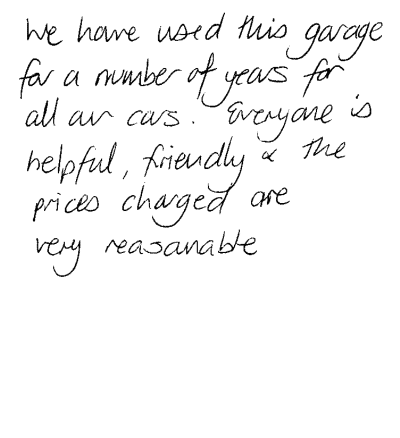 We have used this garage
for a number of years for
all our cars. Everyone is
helpful, friendly & the
prices charged are
very reasonable